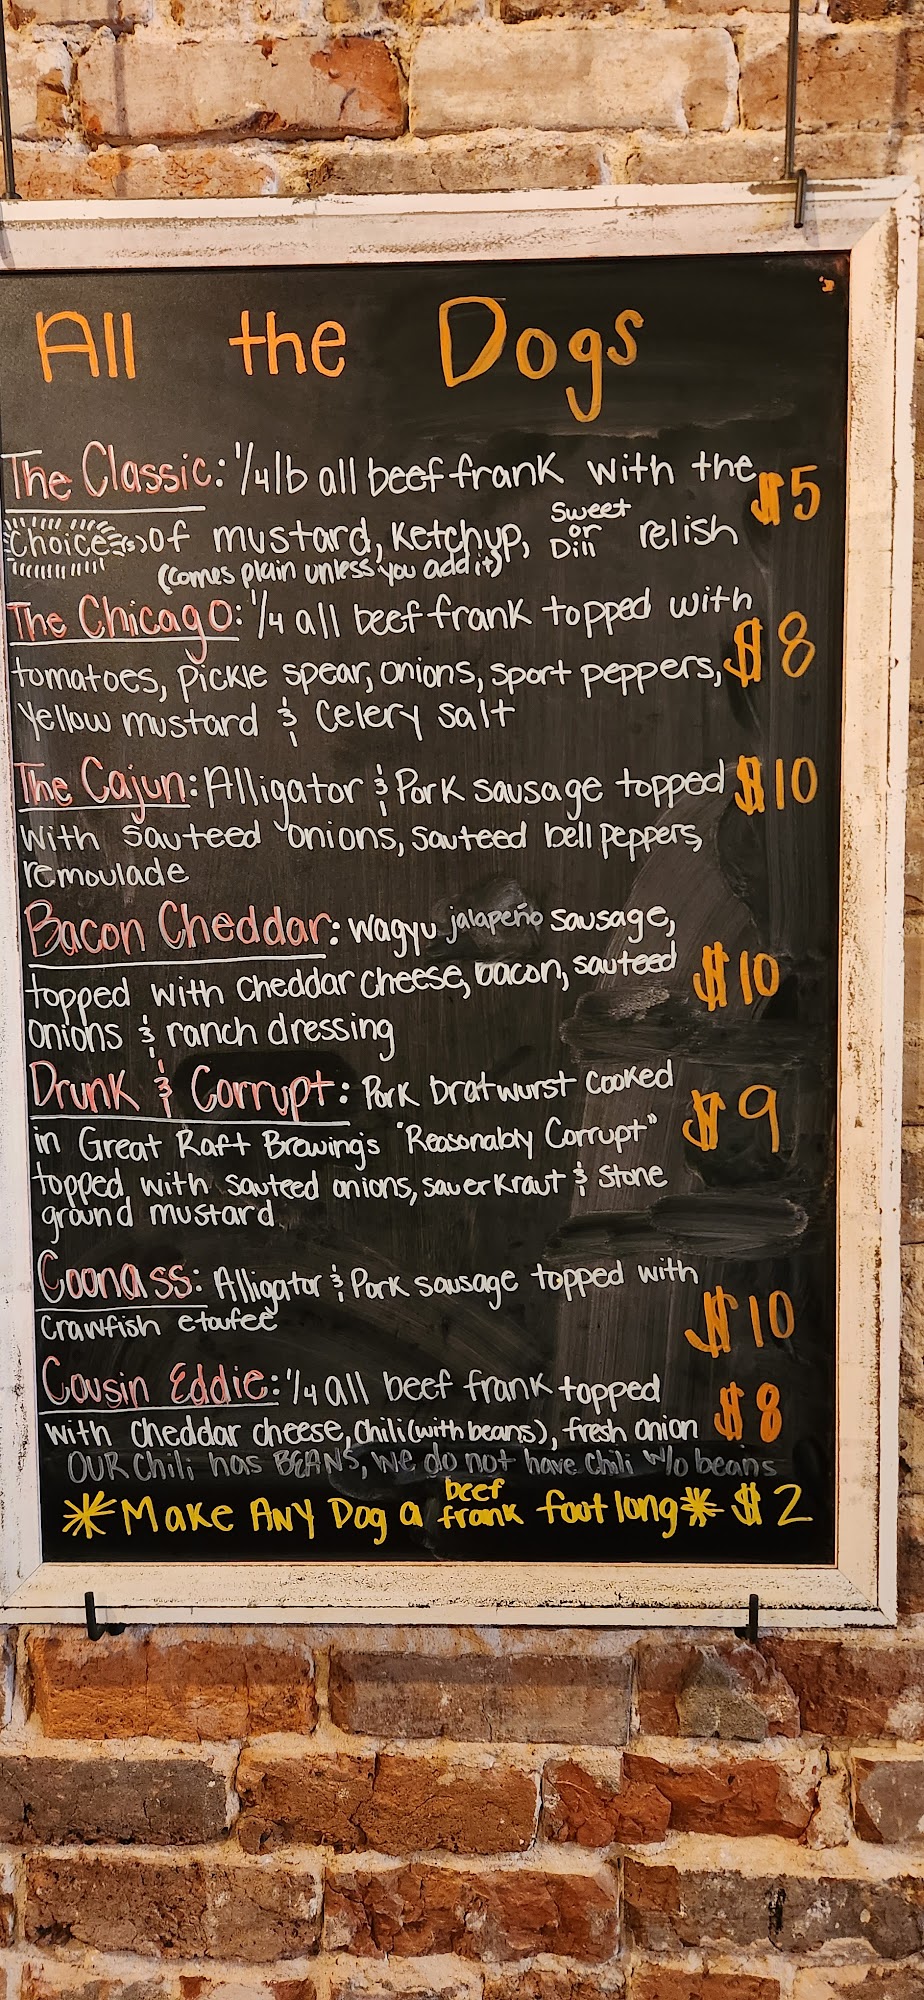 All the Dogs
The Classic: 1/4 lb all beef frank with the $5
Choice(s) of mustard, Ketchup, Sweet or Dill relish
(Comes plain unless you add it)
The Chicago: 1/4 all beef frank topped with
tomatoes, pickle spear, onions, sport peppers, $8
yellow mustard & Celery salt
The Cajun: Alligator & Pork sausage topped $10
with sauteed onions, sauteed bell peppers,
remoulade
Bacon Cheddar: Wagyu jalapeño sausage,
topped with cheddar cheese, bacon, sauteed $10
onions & ranch dressing
Drunk & Corrupt: Pork bratwurst cooked
in Great Raft Brewing's "Reasonably Corrupt" $9
topped with sauteed onions, sauerkraut & stone
ground mustard
Coonass: Alligator & Pork sausage topped with
crawfish etoufee $10
Cousin Eddie: 1/4 all beef frank topped
with cheddar cheese, chili (with beans), fresh onion $8
OUR chili has BEANS, we do not have chili w/o beans
*Make ANY Dog a beef frank foot long* $2